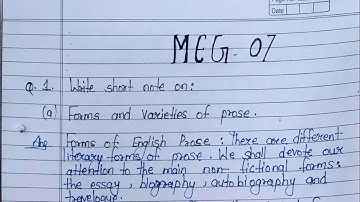 Date
MEG-07
Q.1. Write short note on:
(a) Forms and Varieties of prose.
Ans Forms of English Prose: There are different
literary forms of prose. We shall devote our
attention to the main non-fictional forms:
the essay, biography, autobiography and
travelogue.